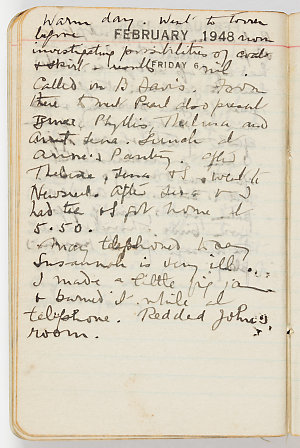 Warm day. Went to town
before
FEBRUARY 1948 noon
investigating possibilities of coats
FRIDAY 6
& skirt - result nil.
Called on D Davis. From
there to meet Pearl also present
Phyllis, Thelma and
Lena. Lunch at
Anne's Pantry. After
Thelma, Lena & I went to
Newsreel. After Lena & I
had tea & I got home at
5.50.
telephoned to say
Susannah is very ill.
I made a little fig jam
& burned it while at
telephone. Redded John's
room.